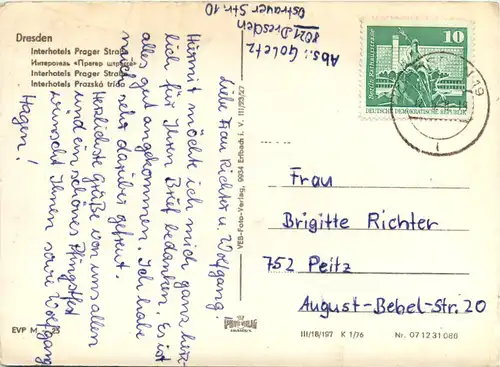 Dresden
Interhotels Prager Straße
Интеротель «Прагер
Interhotels Prager Straße
Interhotels Pražská třída
EVP M
Abs.: Goletz
8021 Dresden
Ostrauer Str. 10
Liebe Frau Richter u. Wolfgang!
Hiermit möchte ich mich ganz herz-
lich für Ihren Brief bedanken. Es ist
alles gut angekommen. Ich habe
mich sehr darüber gefreut.
Herzlichste Grüße von uns allen
und ein schönes Pfingstfest
wünscht Ihnen sowie Wolfgang
Hagen!
VEB-Foto-Verlag, 9934 Erlbach i. V. III/23/27
10
Berlin, Rathausstraße
DEUTSCHE DEMOKRATISCHE REPUBLIK
Frau
Brigitte Richter
752 Peitz
August-Bebel-Str. 20
III/18/197 K 1/76 Nr. 07 12 31 086